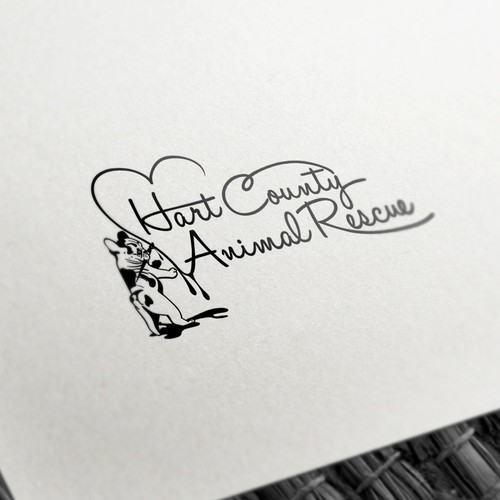 Hart County
Animal Rescue